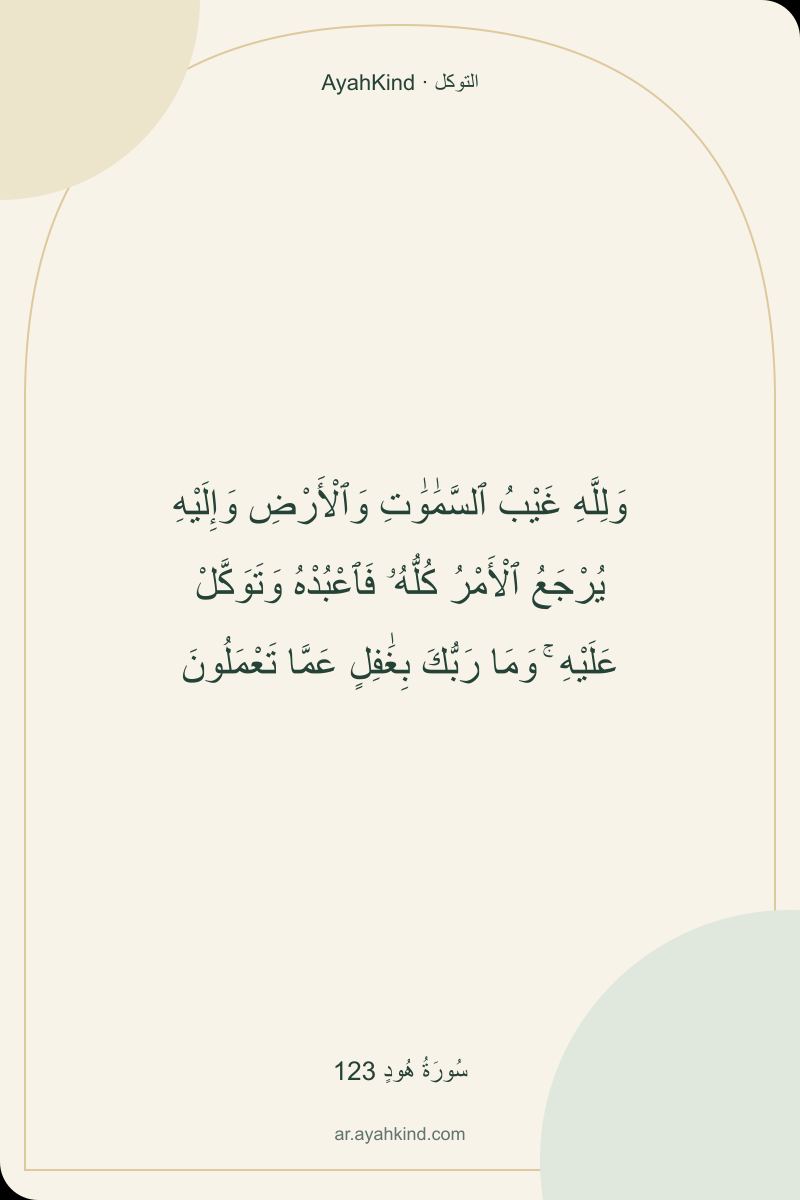 AyahKind · التوكل
وَلِلَّهِ غَيْبُ ٱلسَّمَٰوَٰتِ وَٱلْأَرْضِ وَإِلَيْهِ
يُرْجَعُ ٱلْأَمْرُ كُلُّهُۥ فَٱعْبُدْهُ وَتَوَكَّلْ
عَلَيْهِ ۚ وَمَا رَبُّكَ بِغَٰفِلٍ عَمَّا تَعْمَلُونَ
سُورَةُ هُودٍ 123
ar.ayahkind.com